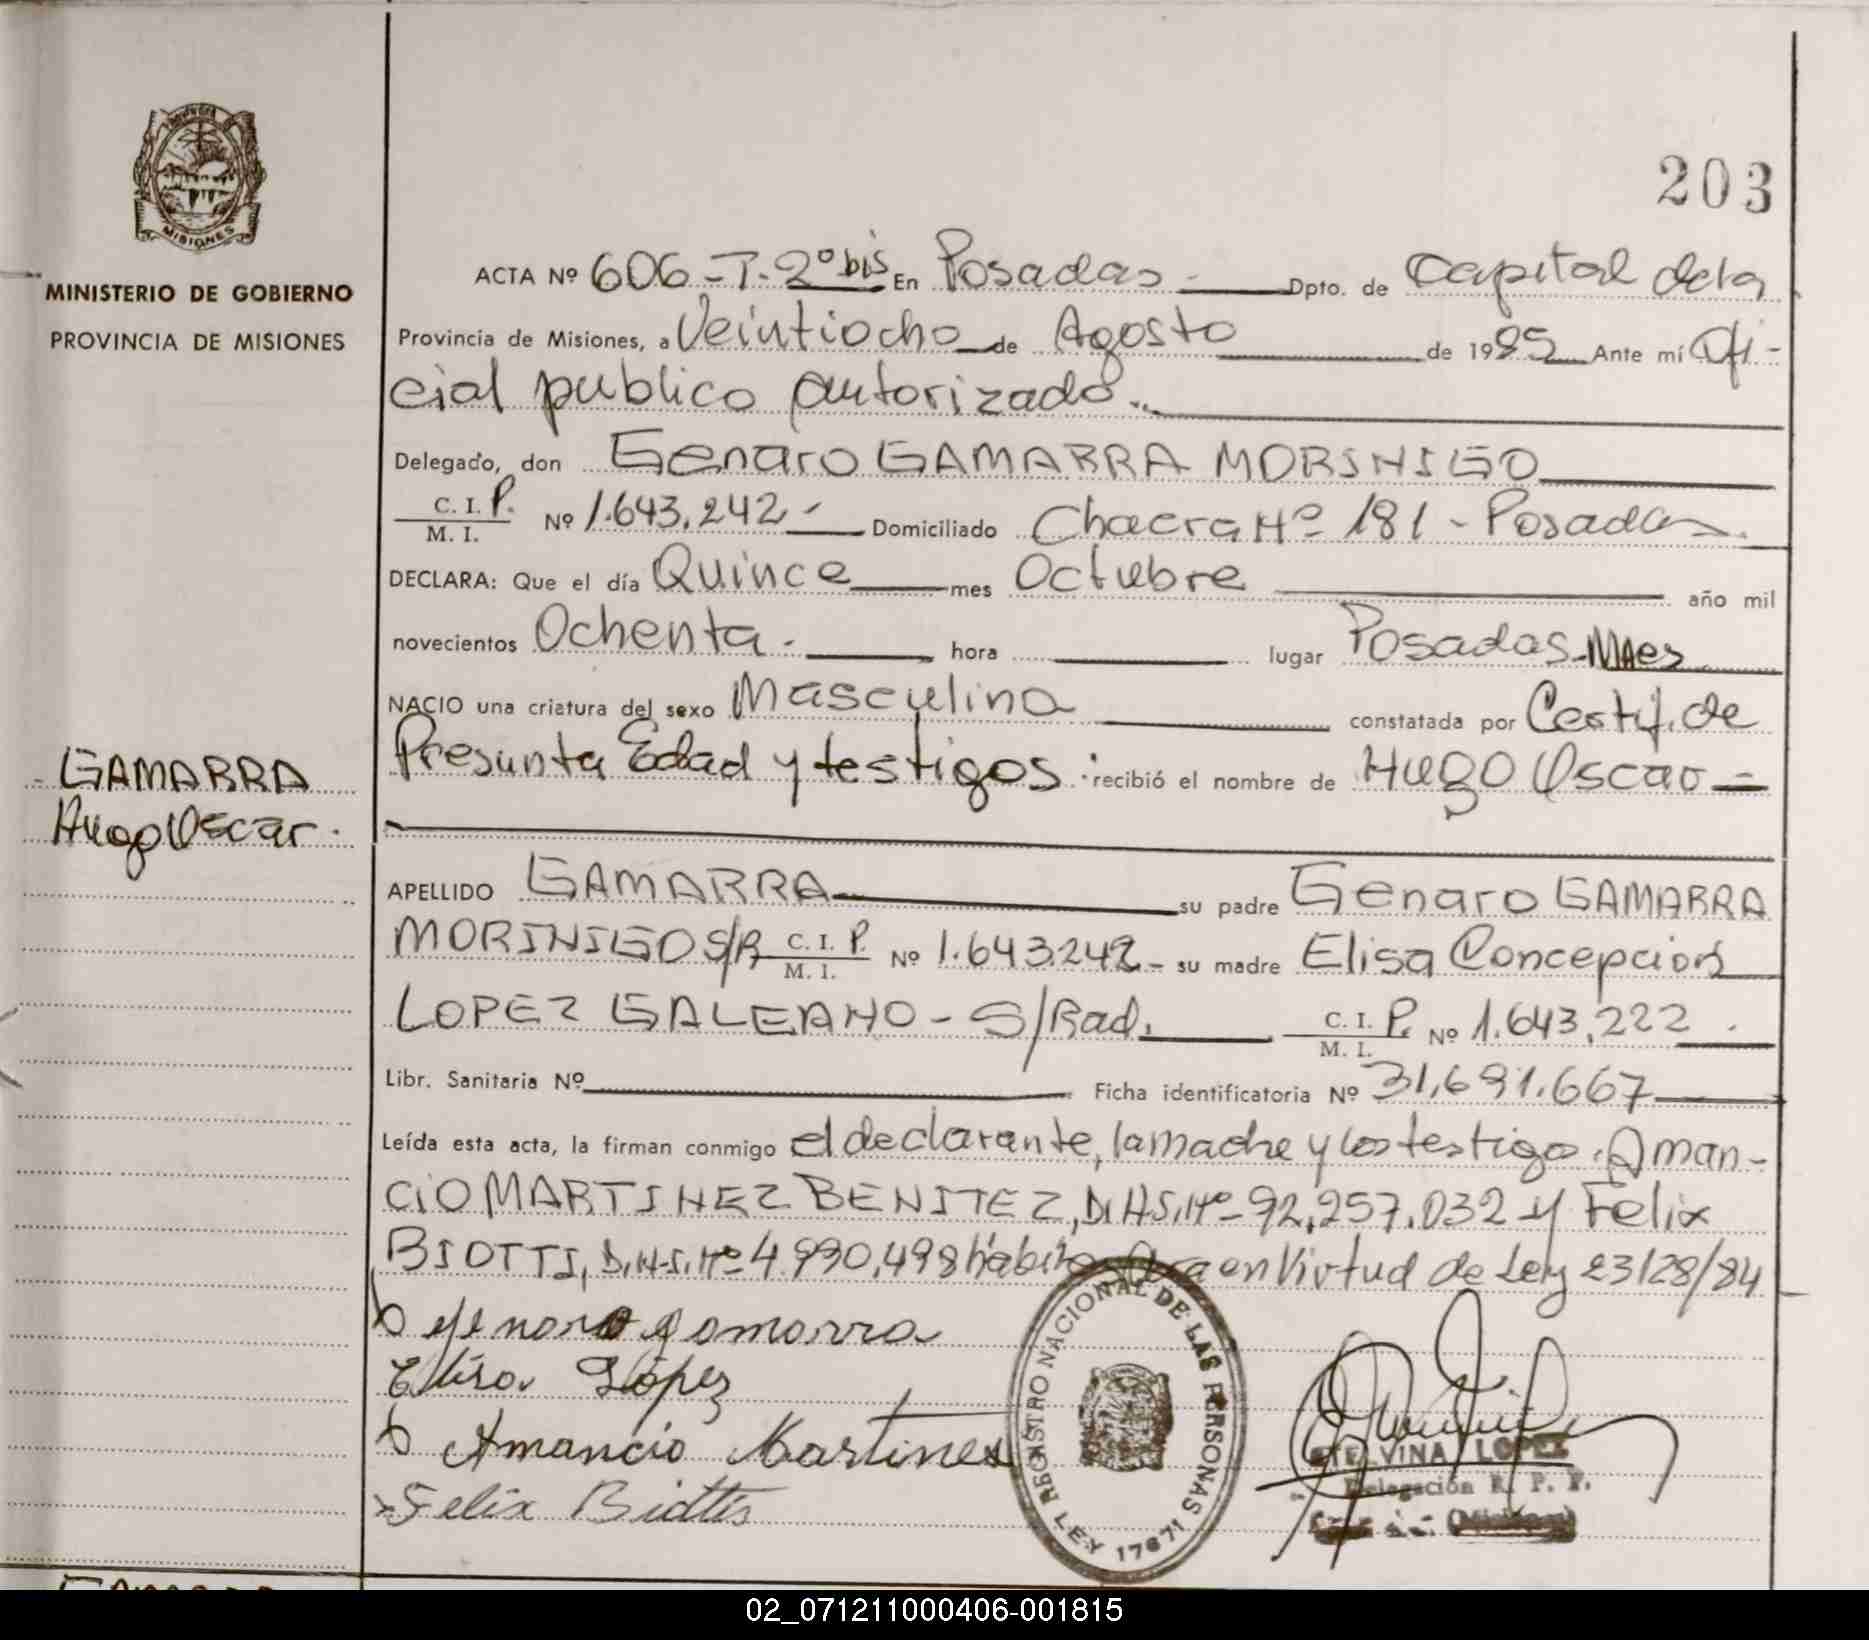 203
MISIONES
MINISTERIO DE GOBIERNO
PROVINCIA DE MISIONES
GAMARRA
Hugo Oscar.
ACTA Nº 606-T-2º bis En Posadas Dpto. de Capital de la
Provincia de Misiones, a Veintiocho de Agosto de 1985 Ante mí Ofi-
cial publico autorizado.
Delegado, don Genaro GAMARRA MORINIGO
C. I. P. / M. I. Nº 1.643.242 - Domiciliado Chacra Nº 181 - Posadas.
DECLARA: Que el día Quince mes Octubre año mil
novecientos Ochenta. hora lugar Posadas-Mnes
NACIO una criatura del sexo Masculino constatada por Certif. de
Presunta Edad y testigos. recibió el nombre de Hugo Oscar =
APELLIDO GAMARRA su padre Genaro GAMARRA
MORINIGO S/R C. I. P. / M. I. Nº 1.643.242 - su madre Elisa Concepcion
LOPEZ GALEANO - S/Rad. C. I. P. / M. I. Nº 1.643.222.
Libr. Sanitaria Nº Ficha identificatoria Nº 31.691.667
Leída esta acta, la firman conmigo el declarante, la madre y los testigo. Aman-
CIO MARTINEZ BENITEZ, D.N.I. Nº 92.257.032 y Felix
BIOTTI, D.N.I. Nº 4.990.498 en Virtud de Ley 23128/84
genaro gamarra
Elisa López
Amancio Martines
Felix Biottis
REGISTRO NACIONAL DE LAS PERSONAS
LEY 17671
ETELVINA LOPEZ
Delegación R. P. P.
02_071211000406-001815